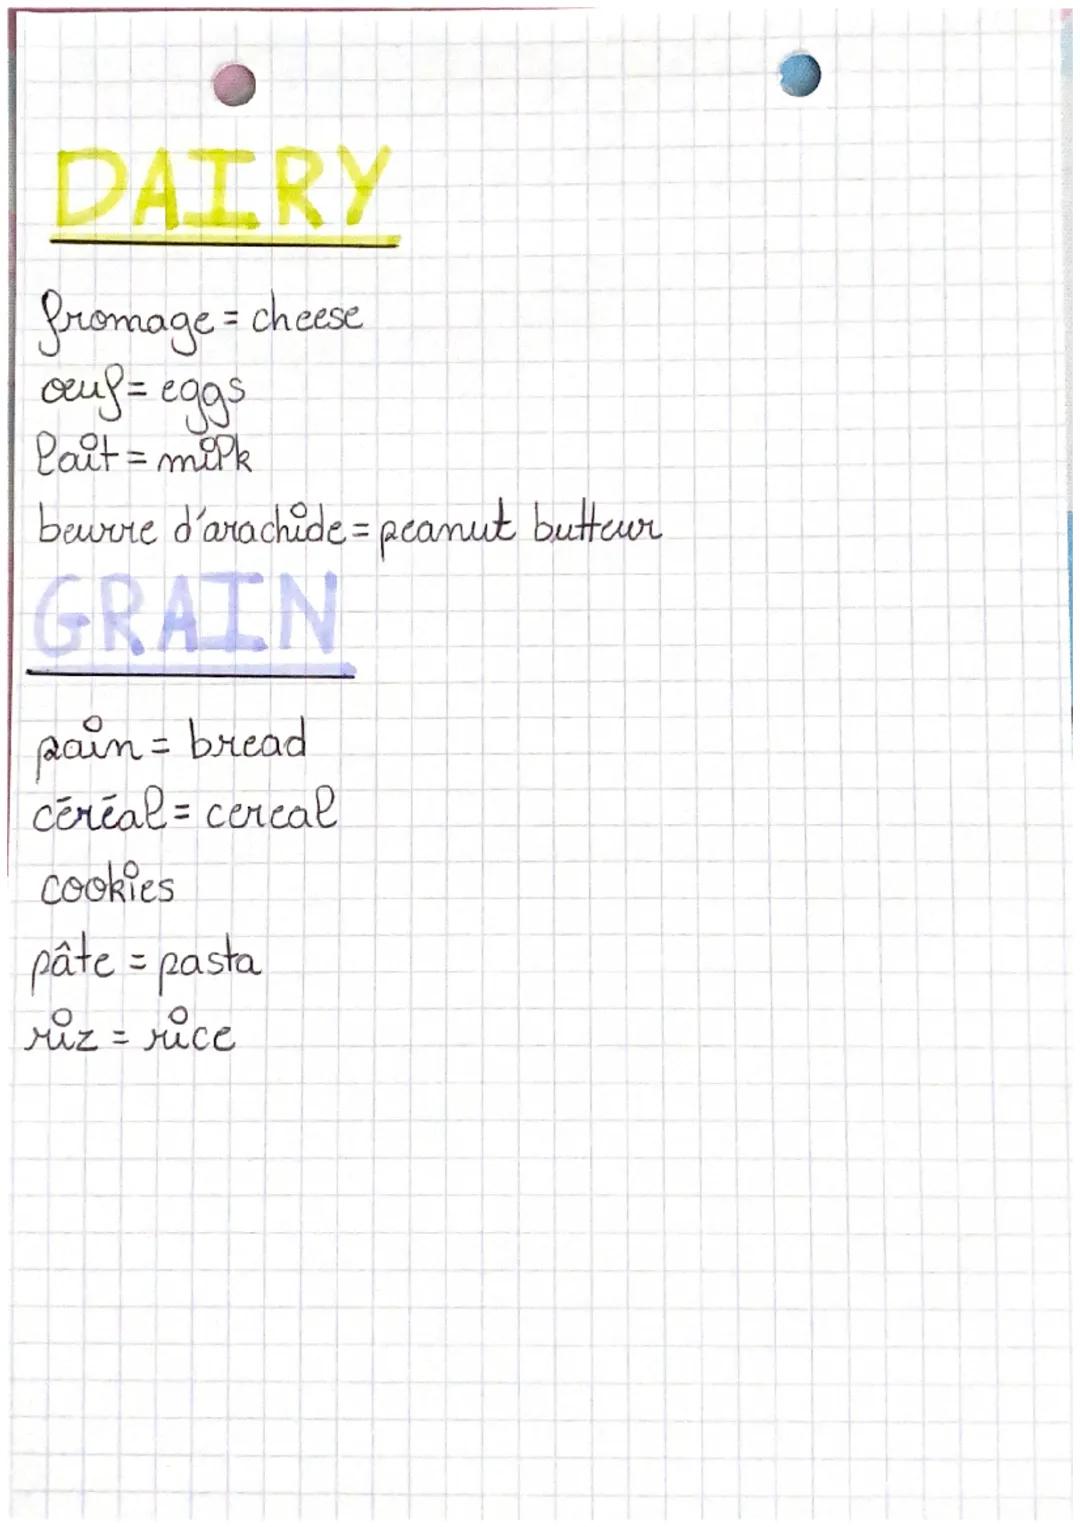 DAIRY
fromage = cheese
oeuf = eggs
lait = milk
beurre d'arachide = peanut butteur
GRAIN
pain = bread
céréal = cereal
cookies
pâte = pasta
riz = rice